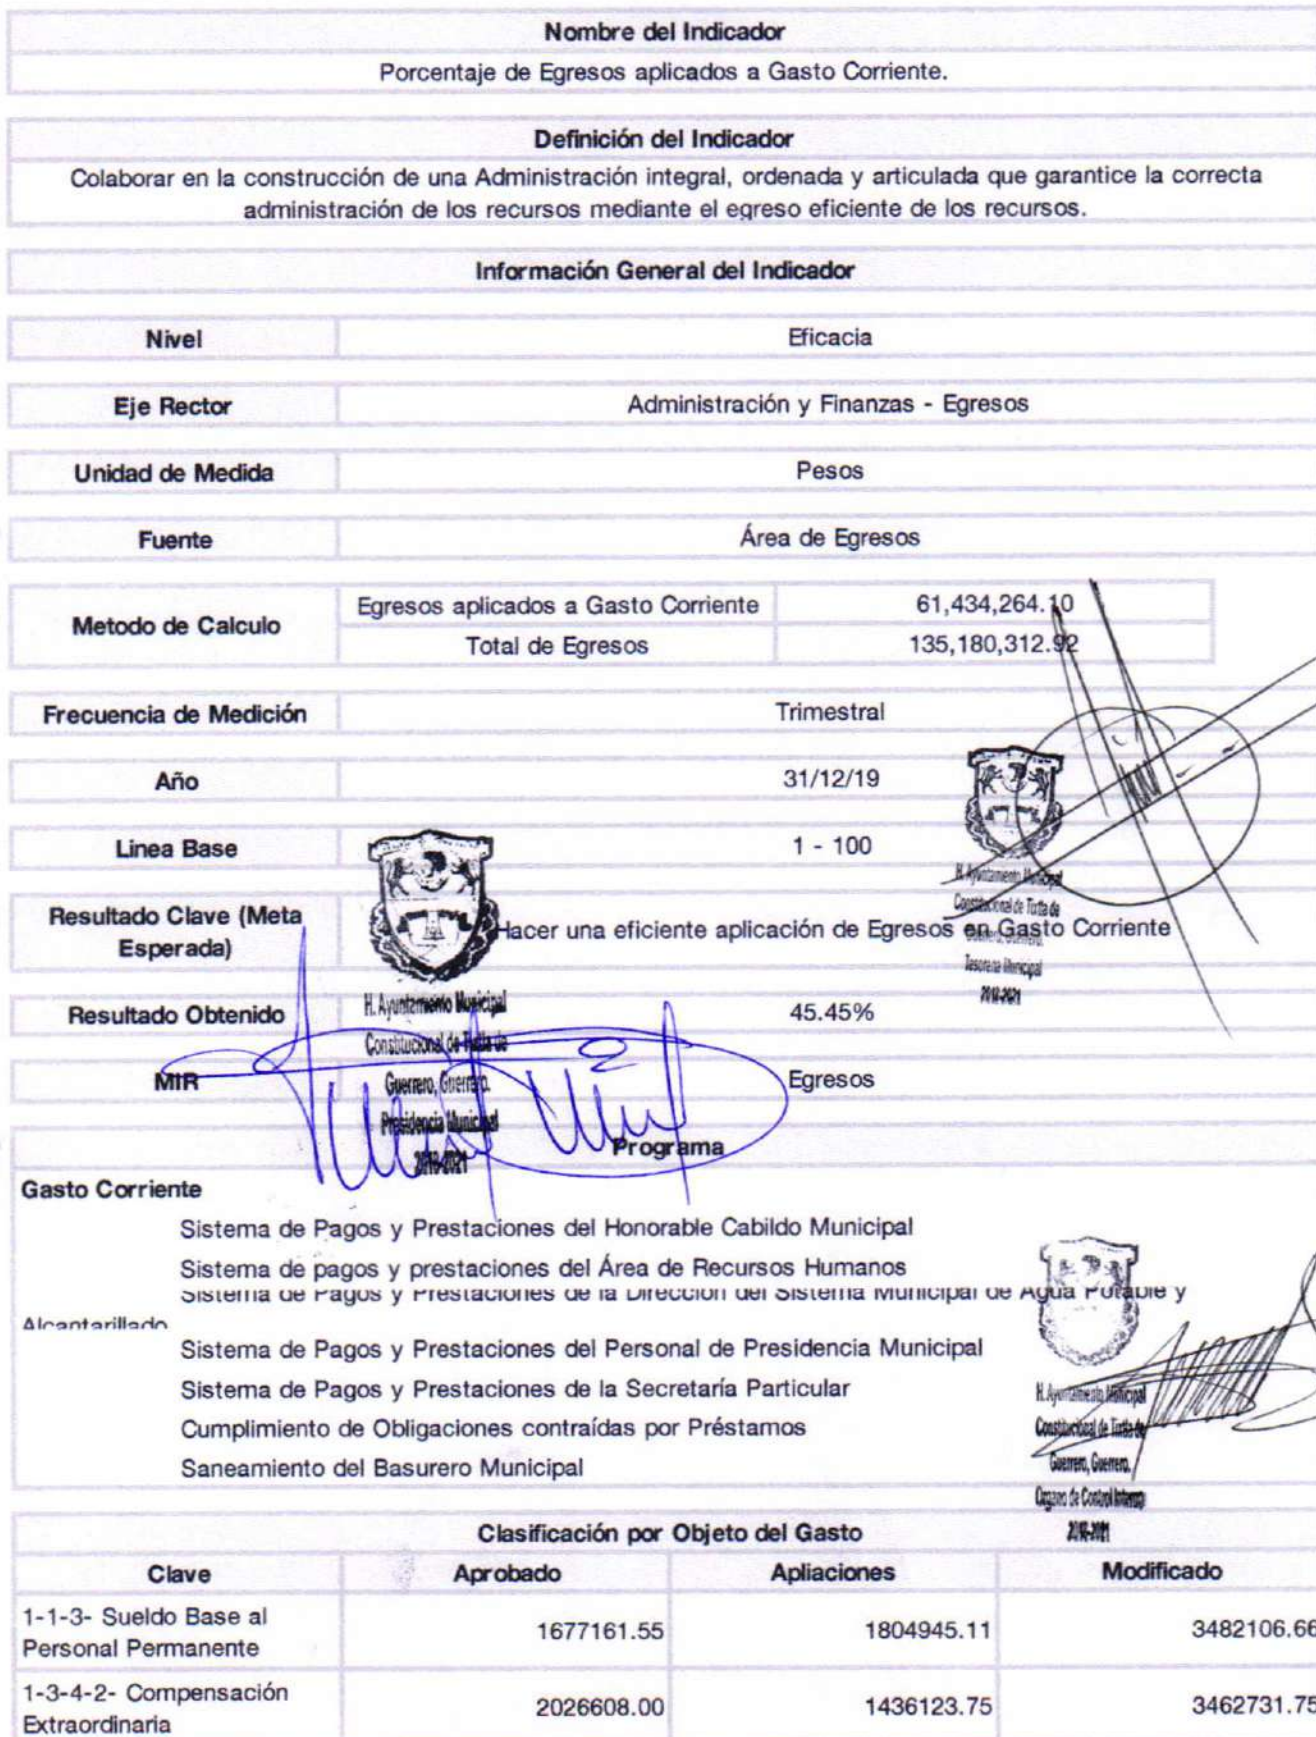 Nombre del Indicador
Porcentaje de Egresos aplicados a Gasto Corriente.
Definición del Indicador
Colaborar en la construcción de una Administración integral, ordenada y articulada que garantice la correcta
administración de los recursos mediante el egreso eficiente de los recursos.
Información General del Indicador
Nivel Eficacia
Eje Rector Administración y Finanzas - Egresos
Unidad de Medida Pesos
Fuente Área de Egresos
Metodo de Calculo
Egresos aplicados a Gasto Corriente 61,434,264.10
Total de Egresos 135,180,312.92
Frecuencia de Medición Trimestral
Año 31/12/19
Linea Base 1 - 100
Resultado Clave (Meta
Esperada)
Hacer una eficiente aplicación de Egresos en Gasto Corriente
Resultado Obtenido 45.45%
MIR Egresos
H. Ayuntamiento Municipal
Constitucional de Tixtla de
Guerrero, Guerrero.
Presidencia Municipal
2018-2021
H. Ayuntamiento Municipal
Constitucional de Tixtla de
Guerrero, Guerrero.
Tesoreria Municipal
2018-2021
Programa
Gasto Corriente
Sistema de Pagos y Prestaciones del Honorable Cabildo Municipal
Sistema de pagos y prestaciones del Área de Recursos Humanos
Sistema de Pagos y Prestaciones de la Dirección del Sistema Municipal de Agua Potable y
Alcantarillado
Sistema de Pagos y Prestaciones del Personal de Presidencia Municipal
Sistema de Pagos y Prestaciones de la Secretaría Particular
Cumplimiento de Obligaciones contraídas por Préstamos
Saneamiento del Basurero Municipal
H. Ayuntamiento Municipal
Constitucional de Tixtla de
Guerrero, Guerrero.
Organo de Control Interno
2018-2021
Clasificación por Objeto del Gasto
Clave Aprobado Apliaciones Modificado
1-1-3- Sueldo Base al
Personal Permanente
1677161.55 1804945.11 3482106.66
1-3-4-2- Compensación
Extraordinaria
2026608.00 1436123.75 3462731.75